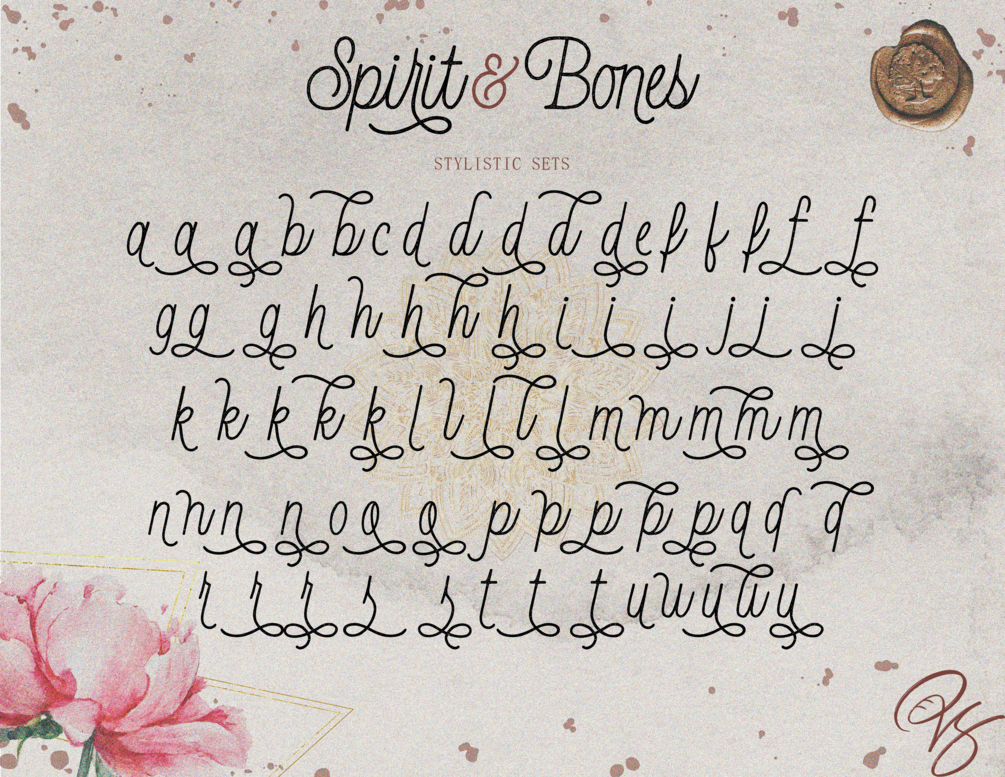 Spirit & Bones
STYLISTIC SETS
a a a b b c d d d d d e f f f f f
g g g h h h h h i i i j j j
k k k k k l l l l l m m m m m
n n n n o o o p p p p p q q q
r r r s s t t t u u u u u